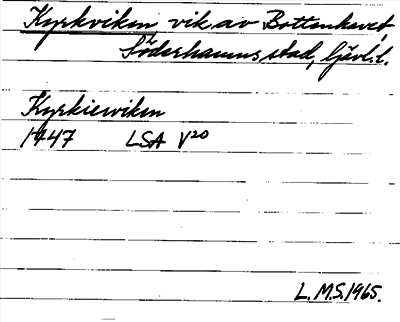 Kyrkviken vik av Bottenhavet
i Söderhamns stad, Gävl. l.
Kyrkiewiken
1747 LSA V20
L. M. S. 1965.